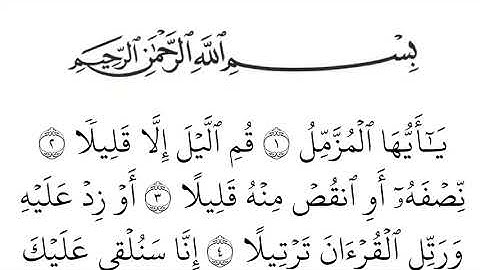 بِسْمِ اللَّهِ الرَّحْمَٰنِ الرَّحِيمِ
يَـٰٓأَيُّهَا ٱلْمُزَّمِّلُ ١ قُمِ ٱلَّيْلَ إِلَّا قَلِيلًا ٢
نِّصْفَهُۥٓ أَوِ ٱنقُصْ مِنْهُ قَلِيلًا ٣ أَوْ زِدْ عَلَيْهِ
وَرَتِّلِ ٱلْقُرْءَانَ تَرْتِيلًا ٤ إِنَّا سَنُلْقِى عَلَيْكَ